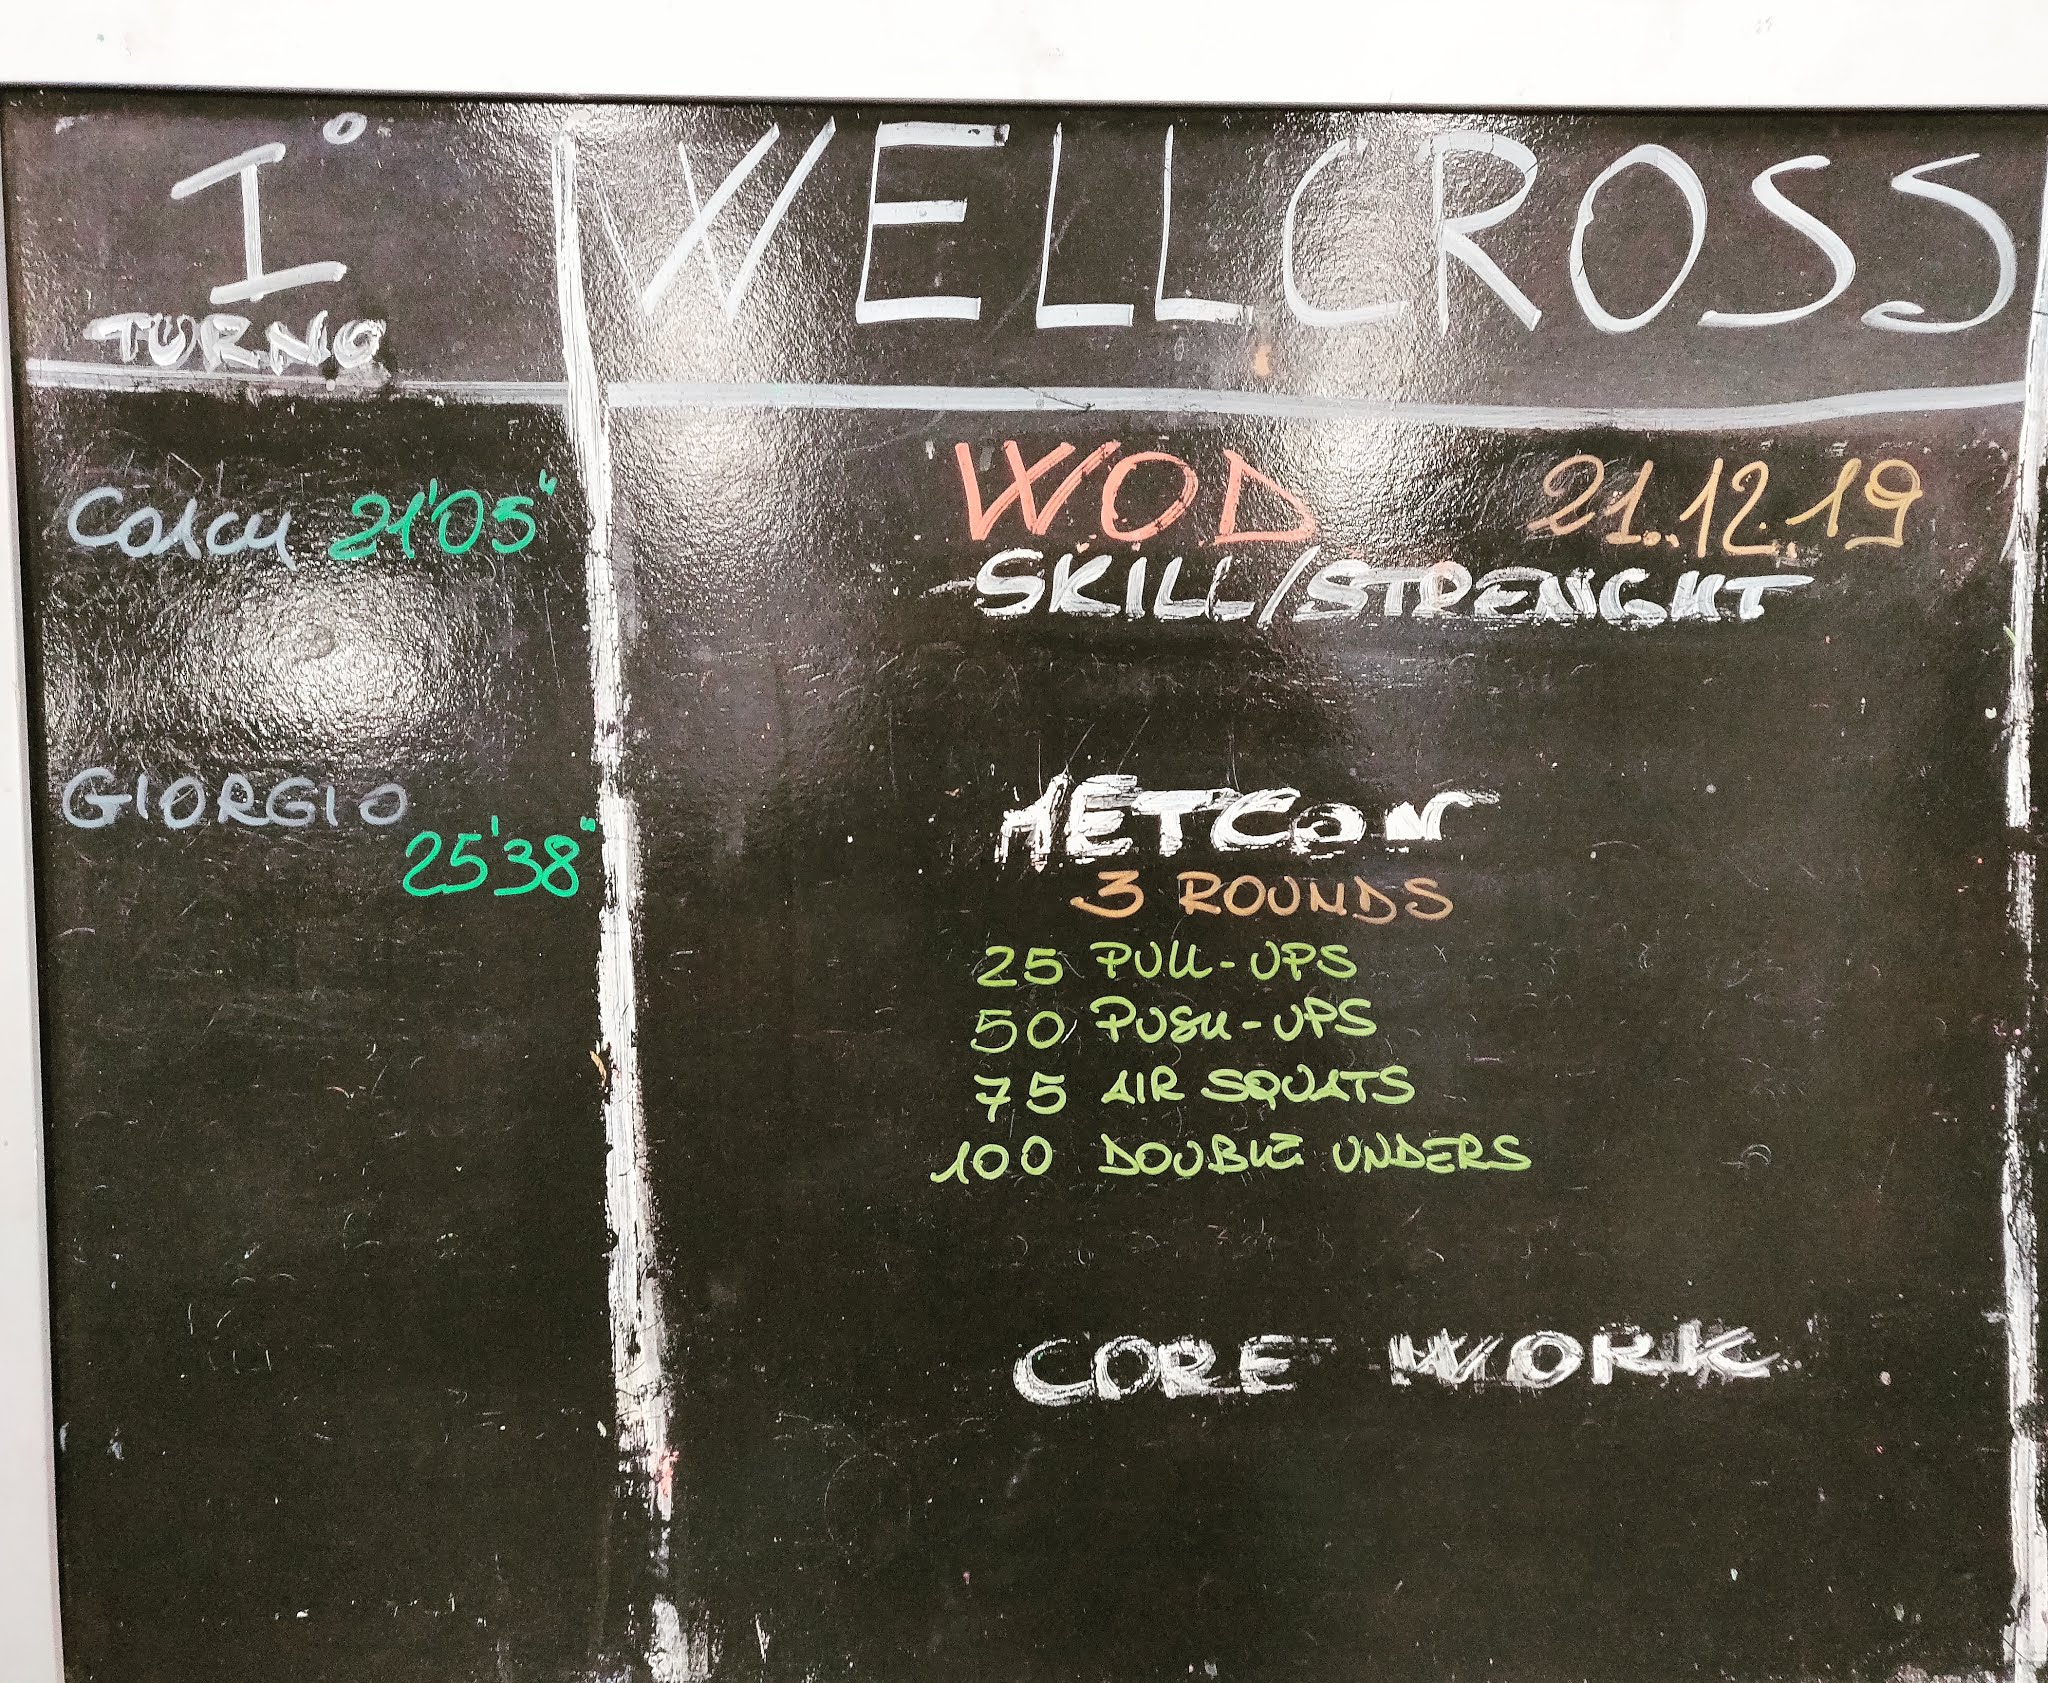 I° TURNO
WELLCROSS
COACH 21'05"
GIORGIO
25'38"
WOD 21.12.19
SKILL/STRENGHT
METCON
3 ROUNDS
25 PULL-UPS
50 PUSH-UPS
75 AIR SQUATS
100 DOUBLE UNDERS
CORE WORK